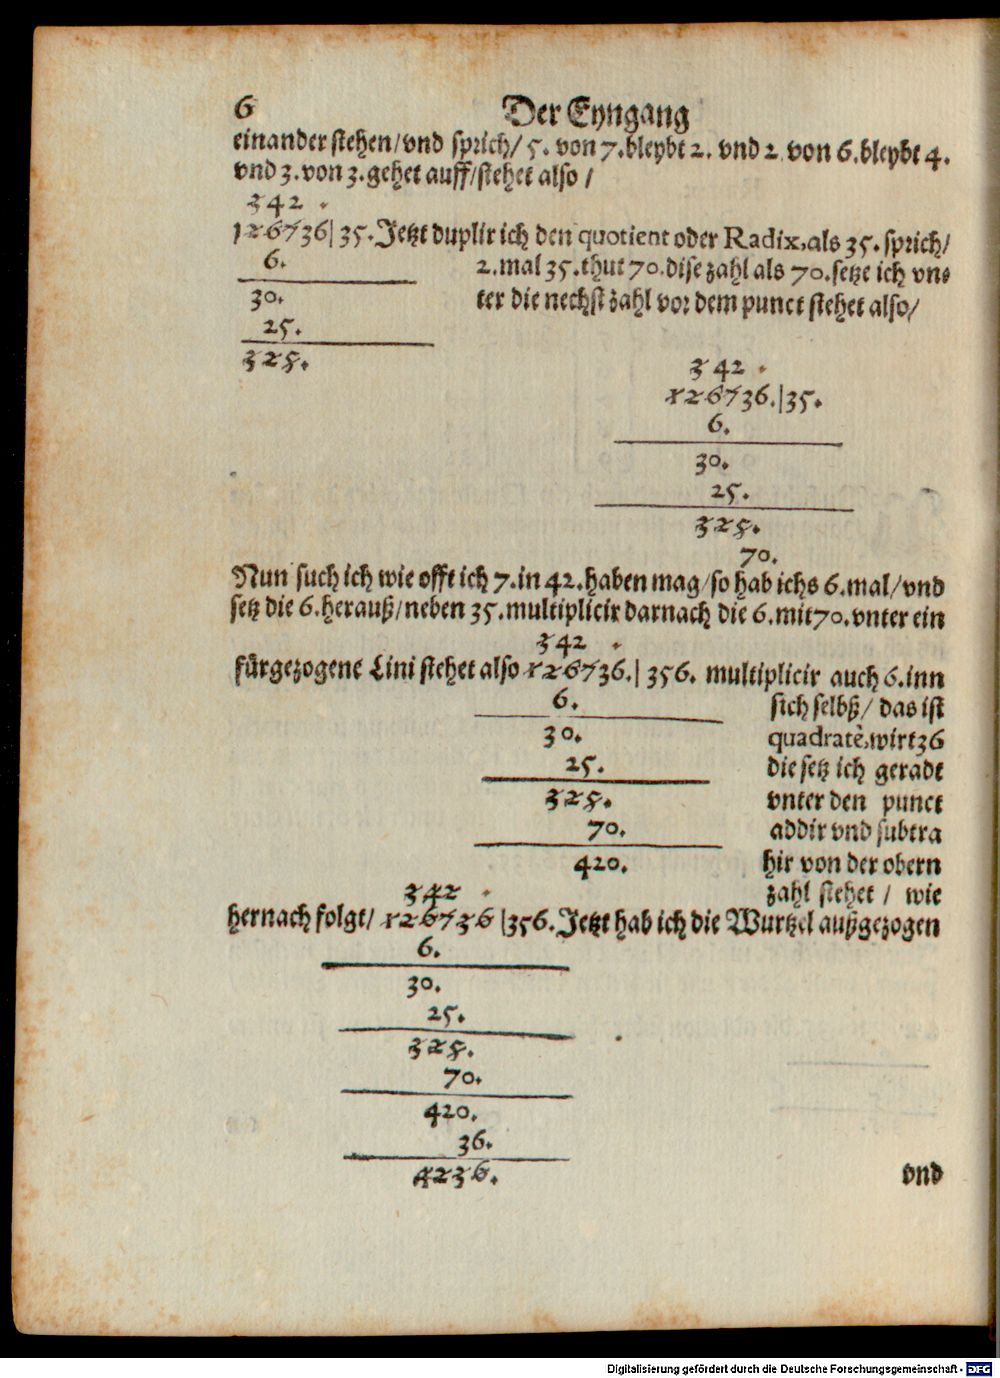 6 Der Eyngang
einander stehen/vnd sprich/ 5. von 7.bleybt 2. vnd 2. von 6.bleybt 4.
vnd 3.von 3.gehet auff/stehet also /
342 .
126736| 35.Jetzt duplir ich den quotient oder Radix,als 35. sprich/
6. 2.mal 35.thut 70.dise zahl als 70.setze ich vn-
30. ter die nechst zahl vor dem punct stehet also/
25.
325.
342 .
126736.|35.
6.
30.
25.
325.
70.
Nun such ich wie offt ich 7.in 42.haben mag/so hab ichs 6.mal/vnd
setz die 6.herauß/neben 35.multiplicir darnach die 6.mit70.vnter ein
342 .
fürgezogene Lini stehet also 126736.| 356. multiplicir auch 6.inn
6. sich selbß/ das ist
30. quadratè,wirt36
25. die setz ich geradt
325. vnter den punct
70. addir vnd subtra
420. hir von der obern
342 . zahl stehet / wie
hernach folgt/ 126736 |356.Jetzt hab ich die Wurtzel außgezogen
6.
30.
25.
325.
70.
420.
36.
4236.
vnd
Digitalisierung gefördert durch die Deutsche Forschungsgemeinschaft - DFG